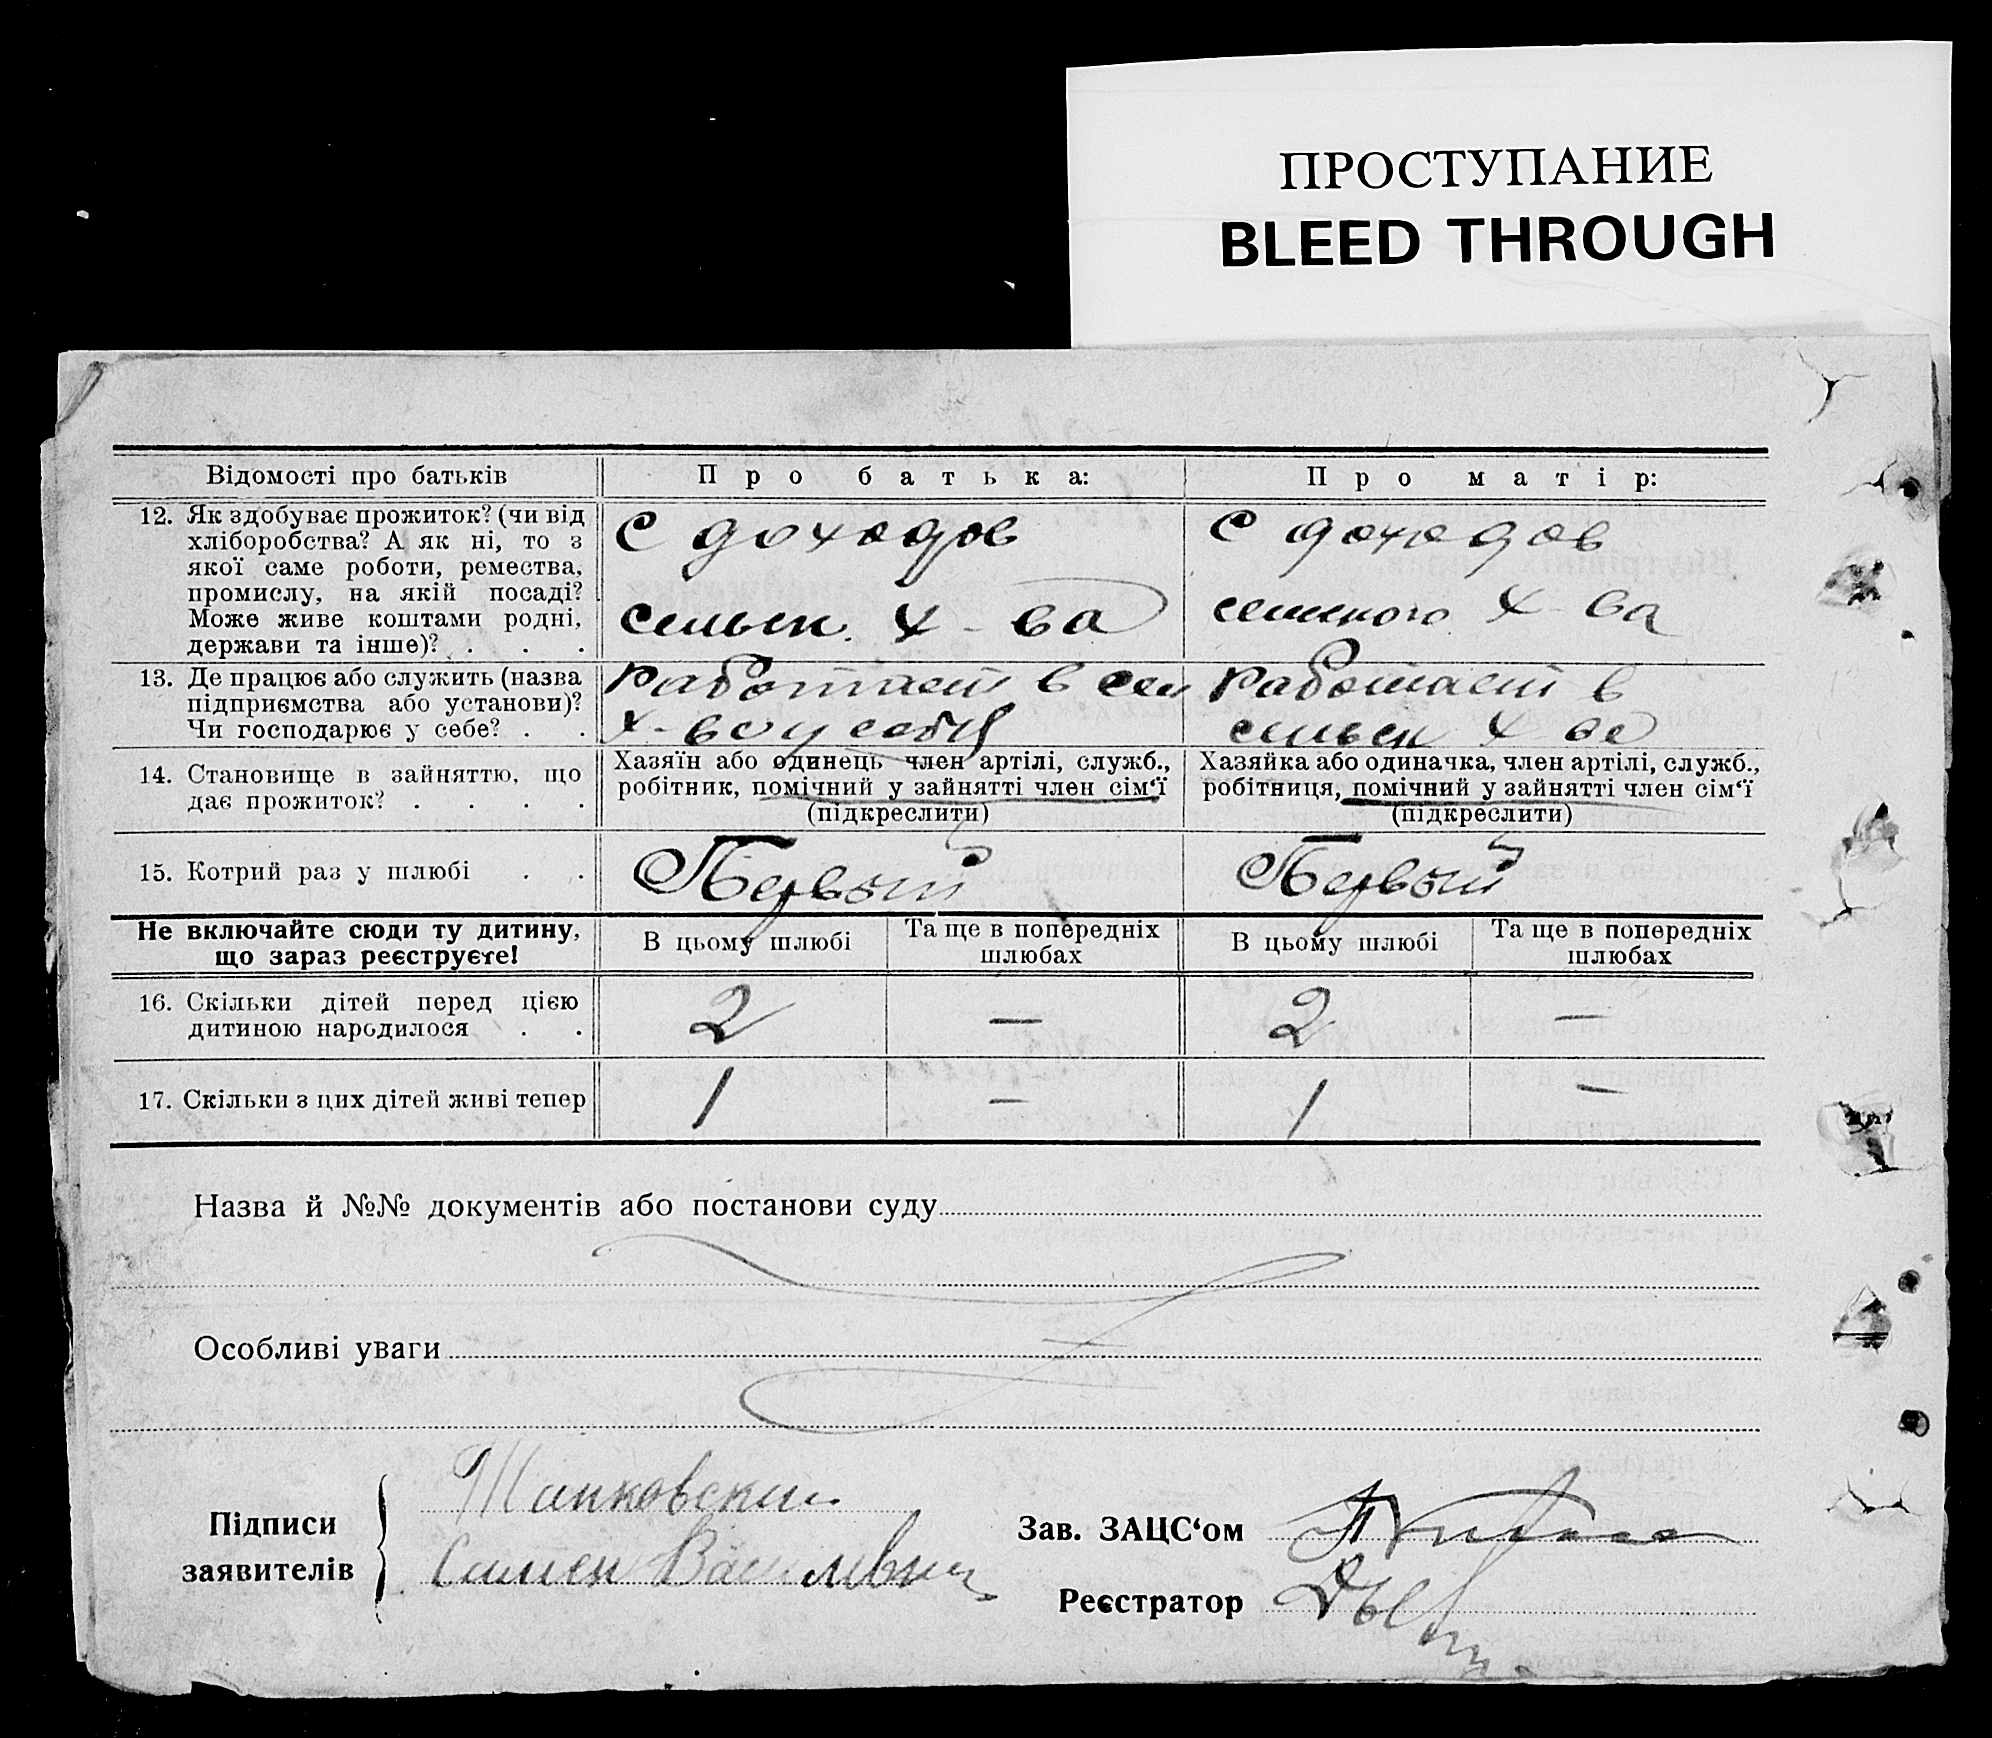 ПРОСТУПАНИЕ
BLEED THROUGH
Відомості про батьків
Про батька:
Про матір:
12. Як здобуває прожиток? (чи від
хліборобства? А як ні, то з
якої саме роботи, ремества,
промислу, на якій посаді?
Може живе коштами родні,
держави та інше)? . . .
С доходов
сельск. х-ва
С доходов
сельского х-ва
13. Де працює або служить (назва
підприємства або установи)?
Чи господарює у себе? . .
Работает в сел
х-ве у себя
Работает в
сельск х-ве
14. Становище в зайняттю, що
дає прожиток? . . . .
Хазяїн або одинець член артілі, служб.,
робітник, помічний у зайнятті член сім‘ї
(підкреслити)
Хазяйка або одиначка, член артілі, служб.,
робітниця, помічний у зайнятті член сім‘ї
(підкреслити)
15. Котрий раз у шлюбі . .
Первый
Первый
Не включайте сюди ту дитину,
що зараз реєструєте!
В цьому шлюбі
Та ще в попередніх
шлюбах
В цьому шлюбі
Та ще в попередніх
шлюбах
16. Скільки дітей перед цією
дитиною народилося . .
2 — 2 —
17. Скільки з цих дітей живі тепер
1 — 1 —
Назва й №№ документів або постанови суду
Особливі уваги
Підписи
заявителів
Зав. ЗАЦС‘ом
Реєстратор